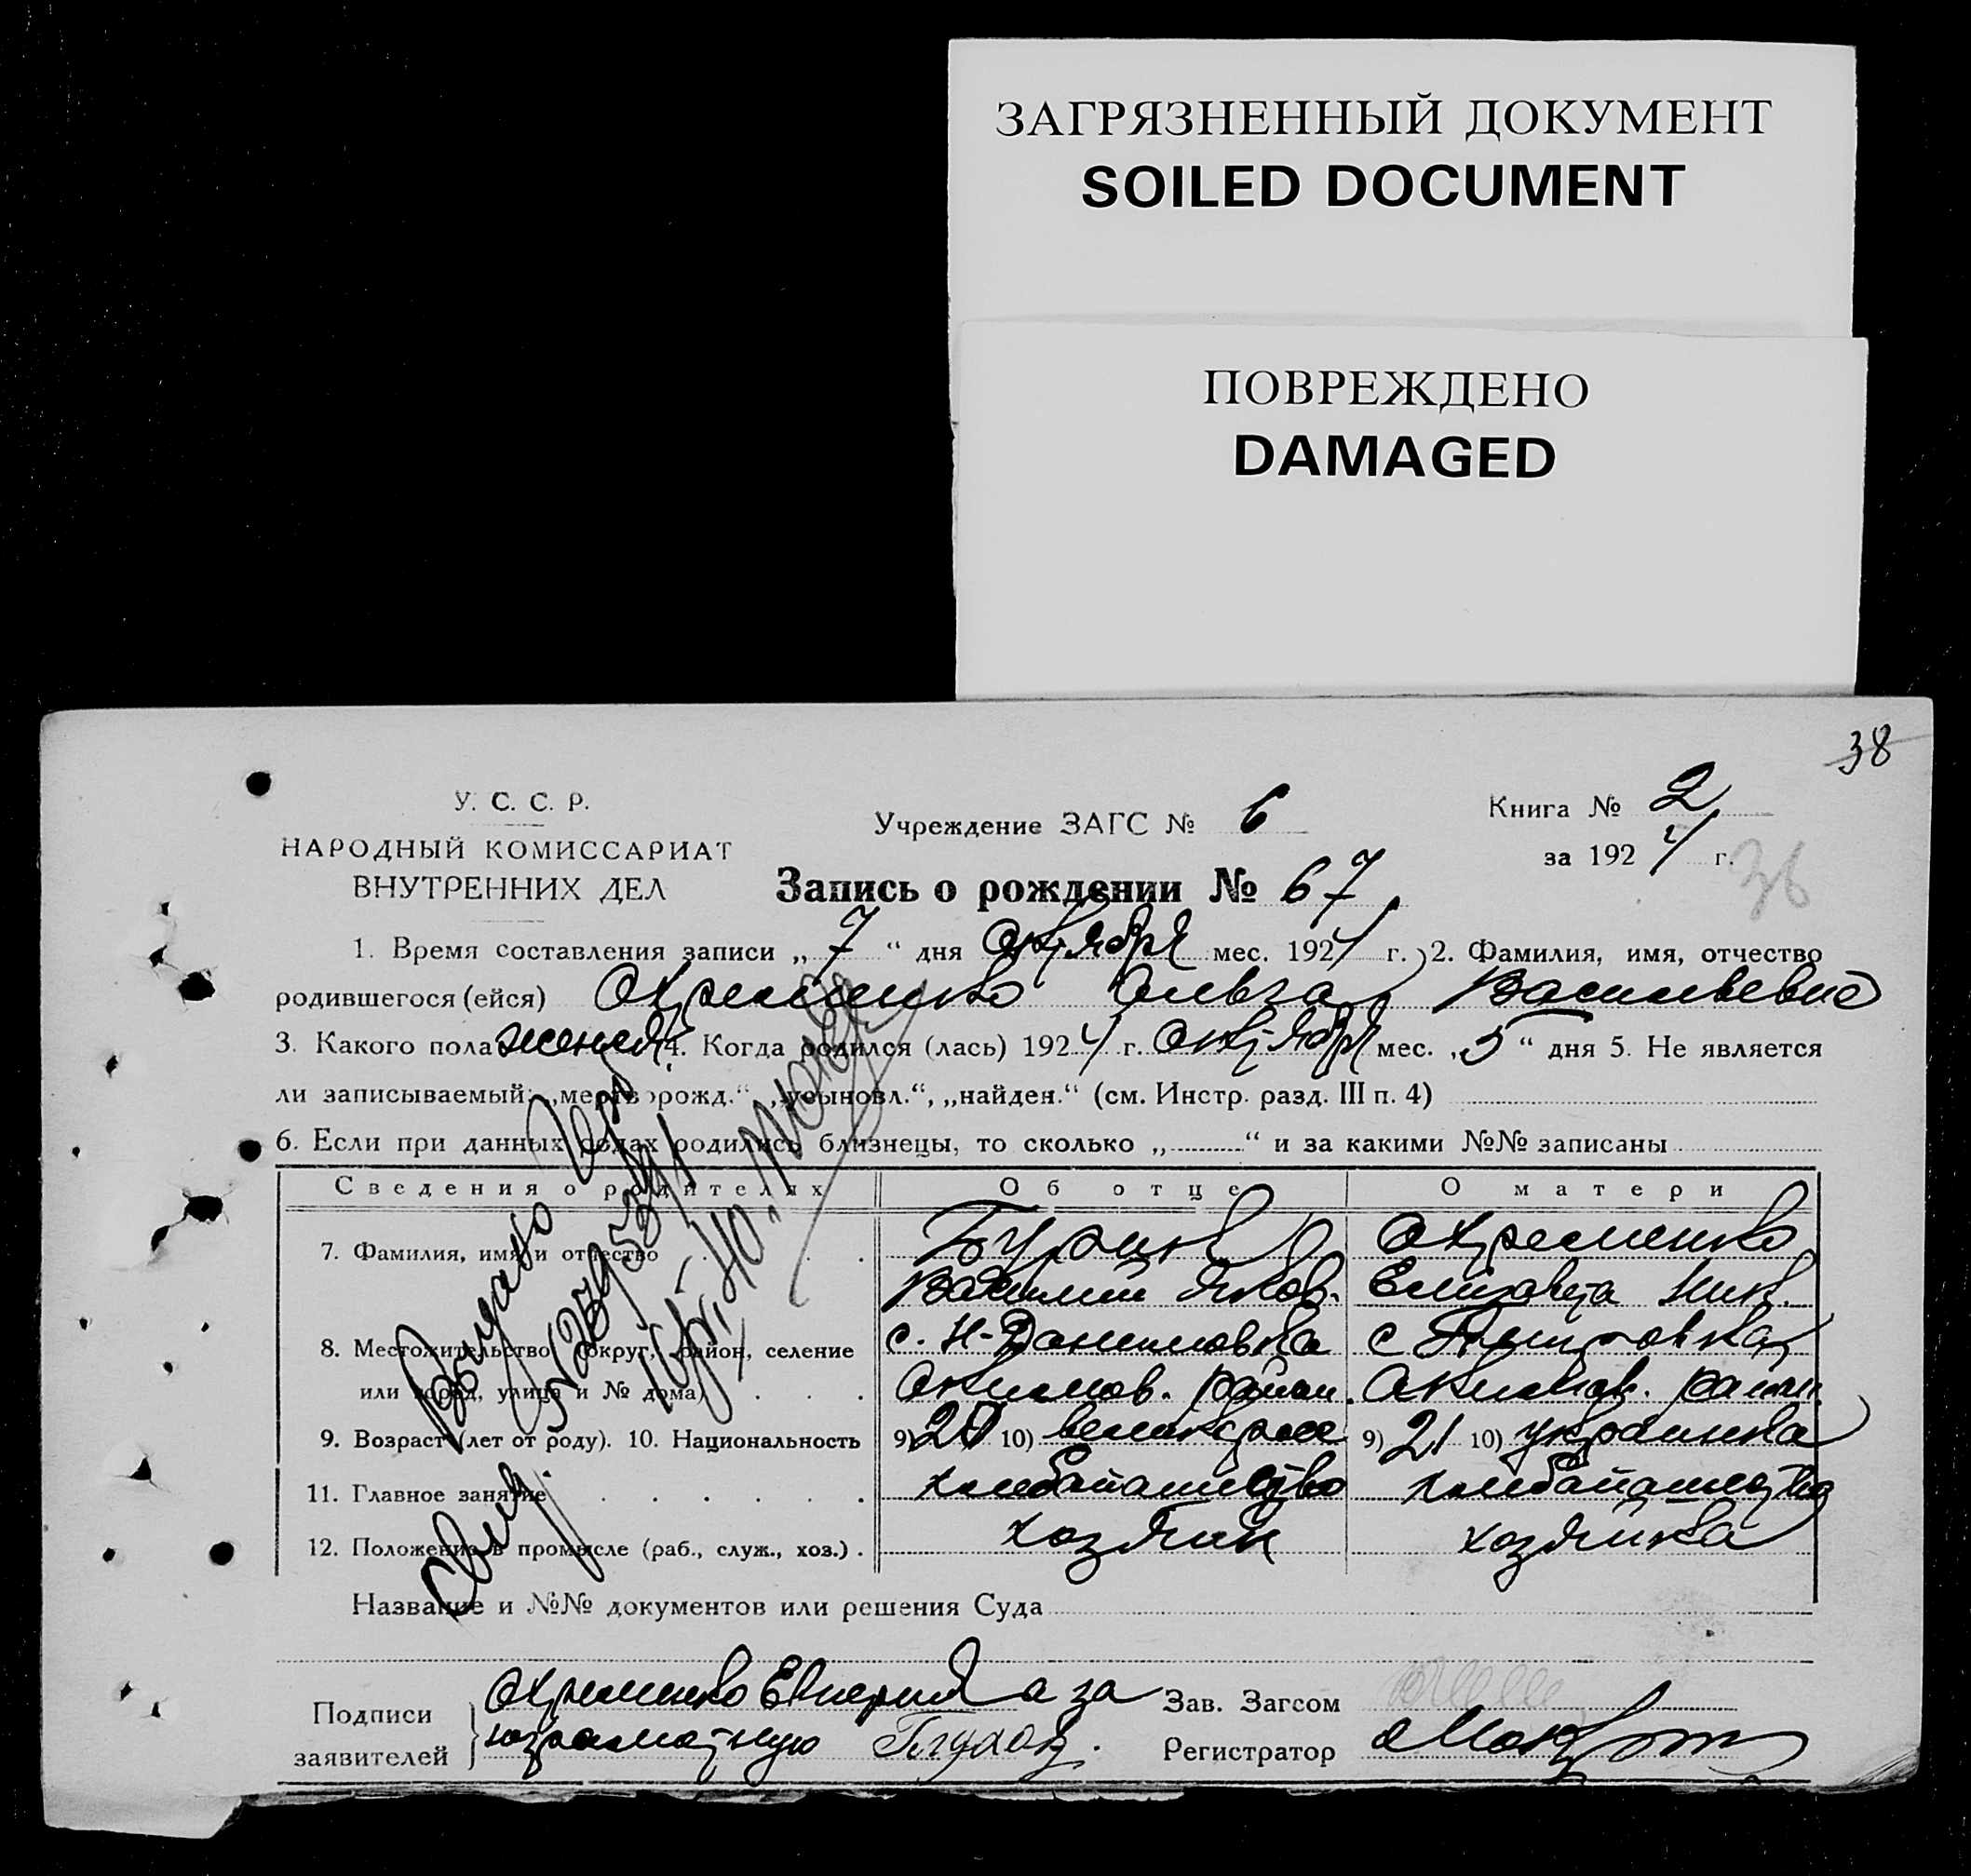 ЗАГРЯЗНЕННЫЙ ДОКУМЕНТ
SOILED DOCUMENT
ПОВРЕЖДЕНО
DAMAGED
38
У. С. С. Р.
НАРОДНЫЙ КОМИССАРИАТ
ВНУТРЕННИХ ДЕЛ
Учреждение ЗАГС № 6
Книга № 2
за 1924 г.
36
Запись о рождении № 67
1. Время составления записи „ 7 “ дня Октября мес. 1924 г. 2. Фамилия, имя, отчество
родившегося (ейся) Охременко Ольга Васильевна
3. Какого пола женск 4. Когда родился (лась) 1924 г. Октября мес. „ 5 “ дня 5. Не является
ли записываемый: „мертворожд.“ „усыновл.“, „найден.“ (см. Инстр. разд. III п. 4)
6. Если при данных родах родились близнецы, то сколько „ “ и за какими №№ записаны
Сведения о родителях Об отце О матери
7. Фамилия, имя и отчество Охременко
Василий Яков. Елизавета Ник.
8. Местожительство (округ, район, селение с. Н-Даниловка с
или город, улица и № дома) Акимов. район. Акимов. район
9. Возраст (лет от роду). 10. Национальность 9) 10) великоросс 9) 21 10) украинка
11. Главное занятие хлебопашество хлебопашество
12. Положение в промысле (раб., служ., хоз.) хозяин хозяйка
Название и №№ документов или решения Суда
Подписи заявителей Охременко а за
неграмотную
Зав. Загсом
Регистратор
Выдано